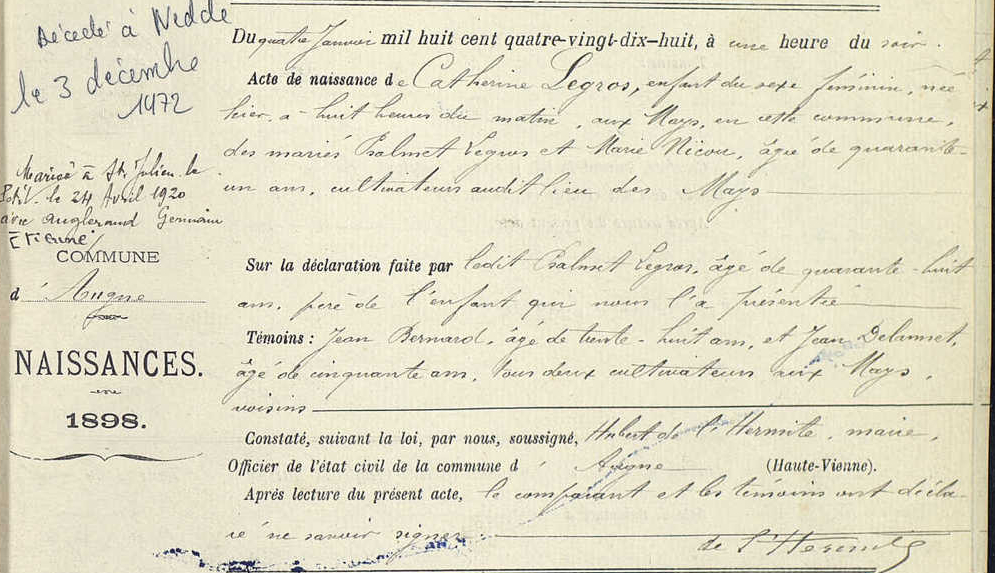 Décédé à Nedde
le 3 décembre
1972
Mariée à St. Julien le
Petit le 24 Avril 1920
avec Anglerand Germain
Etienne
COMMUNE
d' Augne
NAISSANCES.
1898.
Du quatre Janvier mil huit cent quatre-vingt-dix-huit, à une heure du soir.
Acte de naissance de Catherine Legros, enfant du sexe féminin, née
hier, a huit heures du matin, aux Mays, en cette commune,
des mariés Psalmet Legros et Marie Nicou, âgée de quarante-
un ans, cultivateurs audit lieu des Mays
Sur la déclaration faite par ledit Psalmet Legros, âgé de quarante-huit
ans, père de l'enfant qui nous l'a présenté
Témoins : Jean Bernard, âgé de trente-huit ans, et Jean
âgé de cinquante ans, tous deux cultivateurs aux Mays,
voisins
Constaté, suivant la loi, par nous, soussigné, Hubert de l'Hermite, maire,
Officier de l'état civil de la commune d' Augne (Haute-Vienne).
Après lecture du présent acte, le comparant et les témoins ont décla-
ré ne savoir signer
de l'Hermite